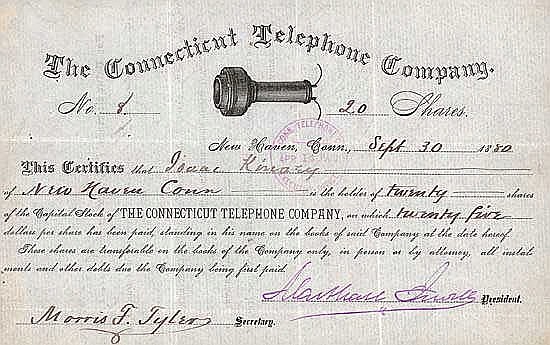 The Connecticut Telephone Company.
No. 8 20 Shares.
New Haven, Conn., Sept 30 1880
This Certifies that Isaac
of New Haven Conn is the holder of twenty shares
of the Capital Stock of THE CONNECTICUT TELEPHONE COMPANY, on which twenty five
dollars per share has been paid, standing in his name on the books of said Company at the date hereof.
These shares are transferable on the books of the Company only, in person or by attorney, all instal-
ments and other debts due the Company being first paid.
President.
Morris F. Tyler Secretary.